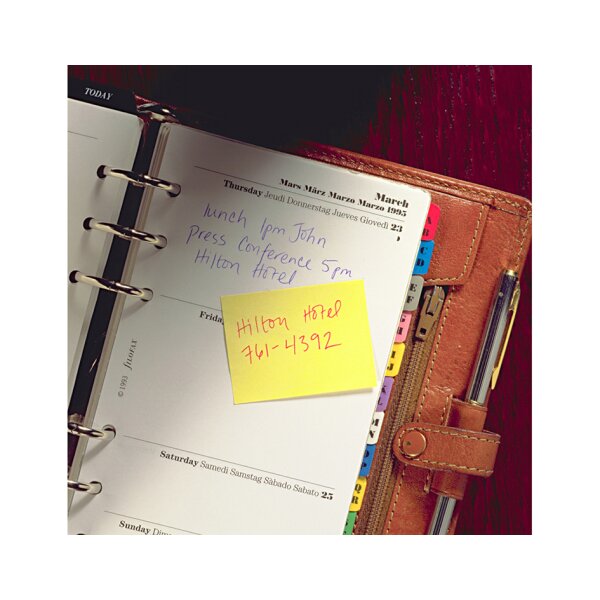 TODAY
March
Mars März Marzo Marzo 1995
Thursday Jeudi Donnerstag Jueves Giovedì 23
lunch 1pm John
Press Conference 5pm
Hilton Hotel
Hilton Hotel
761-4392
© 1993 FILOFAX
Saturday Samedi Samstag Sàbado Sabato 25
Sunday